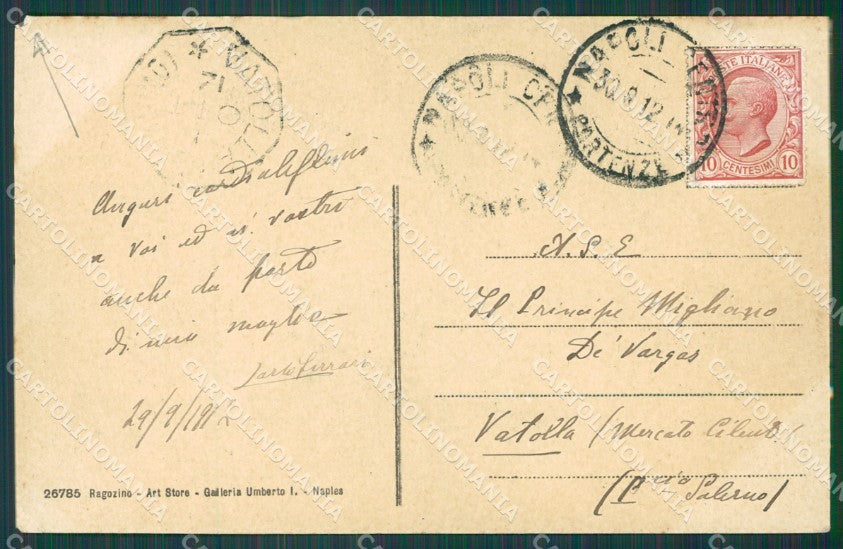 NAPOLI
NAPOLI
PARTENZE
30.9.12
POSTE ITALIANE
10 CENTESIMI 10
Auguri cordialissimi
a voi ed ai vostri
anche da parte
di mia moglie
Carlo Ferrari
29/9/1912
A. S. E
Il Principe Migliano
De' Vargas
Vatolla (Mercato Cilento)
(Pcia Salerno)
26785 Ragozino - Art Store - Galleria Umberto I. - Naples
CARTOLINOMANIA